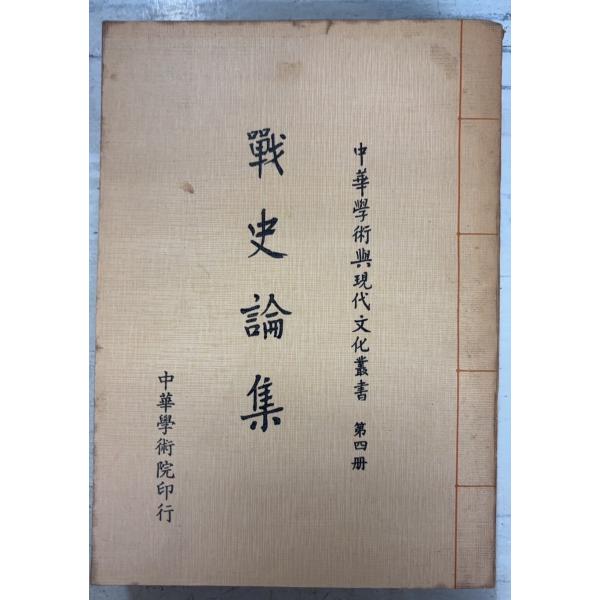 中華學術與現代文化叢書 第四册
戰史論集
中華學術院印行